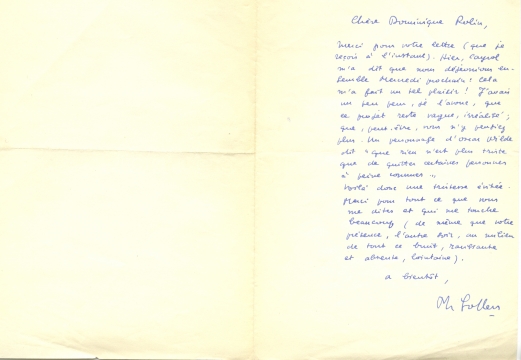 Chère Dominique Rolin,
Merci pour votre lettre (que je
reçois à l'instant). Hier, Cayrol
m'a dit que nous déjeunions en-
semble Mercredi prochain : cela
m'a fait un tel plaisir ! J'avais
un peu peur, je l'avoue, que
ce projet reste vague, irréalité ;
que, peut-être, vous n'y pensiez
plus. Un personnage d'Oscar Wilde
dit "que rien n'est plus triste
que de quitter certaines personnes
à peine connues".
Voilà donc une tristesse évitée.
Merci pour tout ce que vous
me dites et qui me touche
beaucoup (de même que votre
présence, l'autre soir, au milieu
de tout ce bruit, ravissante
et absente, lointaine).
A bientôt,
Ph Sollers